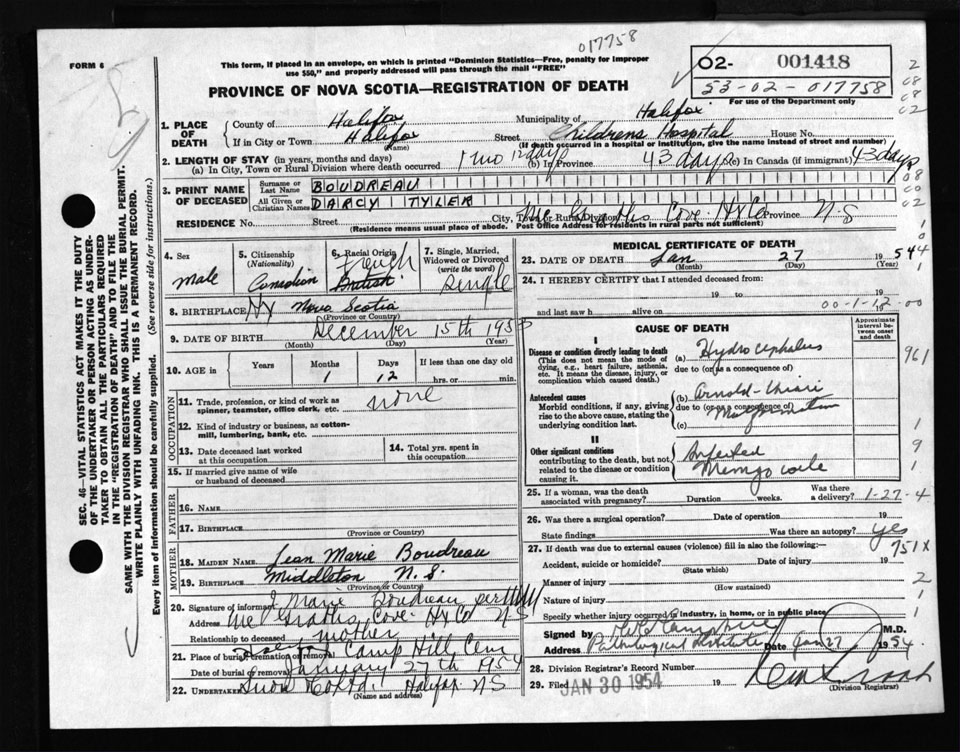 017758
FORM 6
This form, if placed in an envelope, on which is printed "Dominion Statistics—Free, penalty for improper
use $50," and properly addressed will pass through the mail "FREE"
PROVINCE OF NOVA SCOTIA—REGISTRATION OF DEATH
02- 001418
53-02-017758
For use of the Department only
2
08
08
02
SEC. 46—VITAL STATISTICS ACT MAKES IT THE DUTY
OF THE UNDERTAKER OR PERSON ACTING AS UNDER-
TAKER TO OBTAIN ALL THE PARTICULARS REQUIRED
IN THE "REGISTRATION OF DEATH" AND TO FILE THE
SAME WITH THE DIVISION REGISTRAR WHO SHALL ISSUE THE BURIAL PERMIT.
WRITE PLAINLY WITH UNFADING INK. THIS IS A PERMANENT RECORD.
Every item of information should be carefully supplied. (See reverse side for instructions.)
1. PLACE OF DEATH
County of Halifax Municipality of Halifax
If in City or Town Halifax Street Childrens Hospital House No.
(Name) (If death occurred in a hospital or institution, give the name instead of street and number)
2. LENGTH OF STAY (in years, months and days)
(a) In City, Town or Rural Division where death occurred 1 mo 12 days (b) In Province 43 days (c) In Canada (if immigrant) 43 days
3. PRINT NAME OF DECEASED
Surname or Last Name BOUDREAU
All Given or Christian Names DARCY TYLER
08
00
02
RESIDENCE No. Street City, Town or Rural Division Cove Hx Co Province N.S
(Residence means usual place of abode. Post Office Address for residents in rural parts not sufficient)
4. Sex
male
5. Citizenship (Nationality)
Canadian
6. Racial Origin
French
British
7. Single, Married, Widowed or Divorced (write the word)
Single
8. BIRTHPLACE Hx Nova Scotia
(Province or Country)
9. DATE OF BIRTH December 15th 1953
(Month) (Day) (Year)
10. AGE in Years Months Days If less than one day old
1 12 hrs. or min.
OCCUPATION
11. Trade, profession, or kind of work as
spinner, teamster, office clerk, etc. none
12. Kind of industry or business, as cotton-
mill, lumbering, bank, etc.
13. Date deceased last worked
at this occupation
14. Total yrs. spent in
this occupation
15. If married give name of wife
or husband of deceased
FATHER
16. NAME
17. BIRTHPLACE
(Province or Country)
MOTHER
18. MAIDEN NAME Marie Boudreau
19. BIRTHPLACE Middleton N.S.
(Province or Country)
20. Signature of informant Marie Boudreau
Address Cove Hx Co N S
Relationship to deceased mother
21. Place of burial, cremation or removal Camp Hill Cem
Date of burial or removal January 27th 1954
22. Undertaker Snow Co Ltd. Halifax N S
(Name and address)
MEDICAL CERTIFICATE OF DEATH
23. DATE OF DEATH Jan 27 1954
(Month) (Day) (Year)
24. I HEREBY CERTIFY that I attended deceased from:
19 to 19
and last saw h alive on 19
00-1-12-00
CAUSE OF DEATH
Approximate interval between onset and death
I
Disease or condition directly leading to death
(This does not mean the mode of
dying, e.g., heart failure, asthenia,
etc. It means the disease, injury, or
complication which caused death.)
(a) Hydrocephalus
due to (or as a consequence of)
961
Antecedent causes
Morbid conditions, if any, giving
rise to the above cause, stating the
underlying condition last.
(b) Arnold-Chiari
due to (or as a consequence of)
Malformation
(c)
1
II
Other significant conditions
contributing to the death, but not
related to the disease or condition
causing it.
Infected
Meningocoele
9
1
25. If a woman, was the death
associated with pregnancy? Duration weeks. Was there a delivery?
1-27-4
26. Was there a surgical operation? Date of operation 19
State findings Was there an autopsy? Yes
27. If death was due to external causes (violence) fill in also the following:—
751X
Accident, suicide or homicide? Date 19
(State which)
Manner of injury
(How sustained)
2
Nature of injury
1
Specify whether injury occurred in industry, in home, or in public place
1
Signed by M.D.
Pathological Institute Date Jan 27 1954
28. Division Registrar's Record Number
29. Filed JAN 30 1954 19
(Division Registrar)